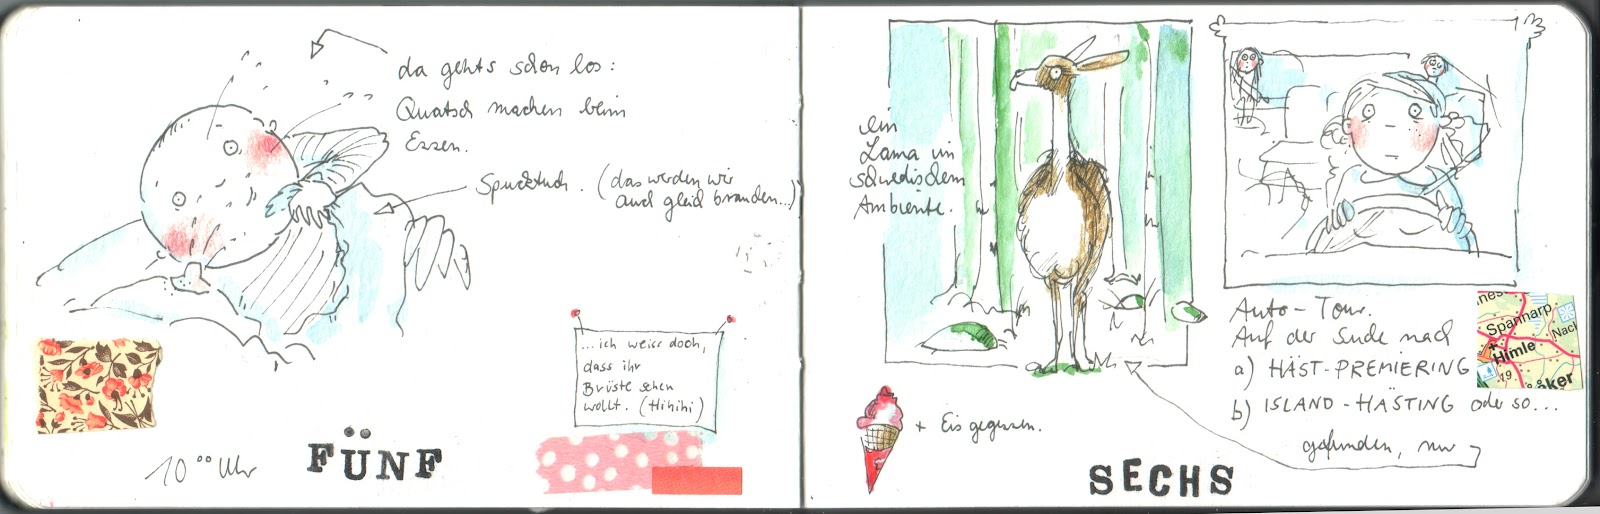 da gehts schon los:
Quatsch machen beim
Essen.
Spucktuch. (das werden wir
auch gleich brauchen...)
...ich weiss doch,
dass ihr
Brüste sehen
wollt. (Hihihi)
10°° Uhr
FÜNF
ein
Lama im
schwedischem
Ambiente.
+ Eis gegessen.
SECHS
Auto-Tour.
Auf der Suche nach
a) HÄST-PREMIERING
b) ISLAND-HÄSTING oder so...
gefunden, nur
Spannarp
Nack
Himle
19
åker